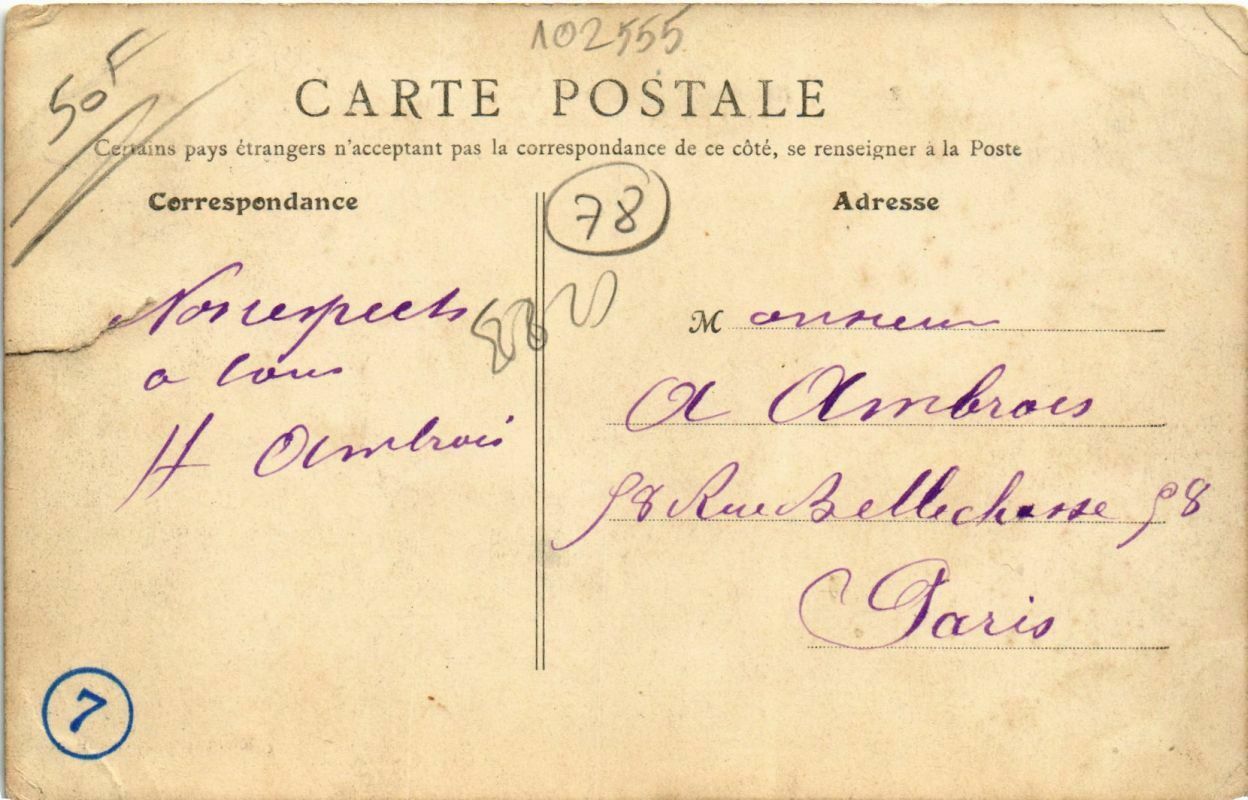 102555
50F
CARTE POSTALE
Certains pays étrangers n'acceptant pas la correspondance de ce côté, se renseigner à la Poste
Correspondance
Nos respects
a tous
H Ambrois
78
Adresse
Monsieur
A Ambrois
58 Rue Bellechasse 58
Paris
7